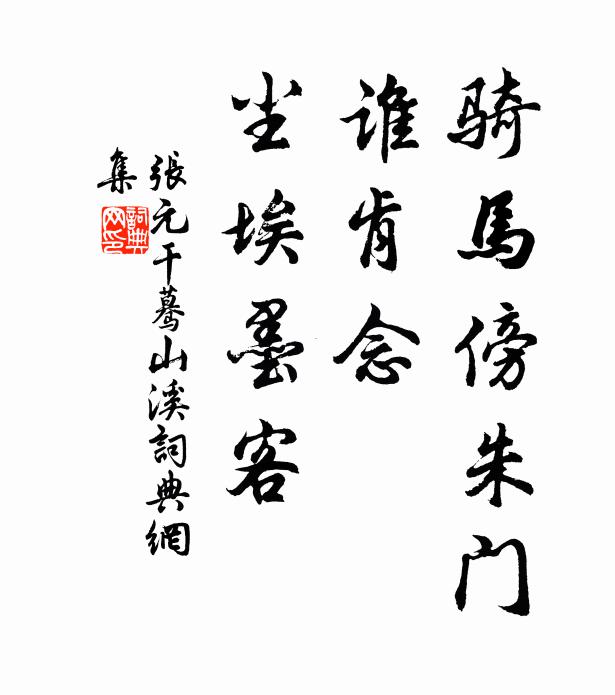 骑馬傍朱门
谁肯念
尘埃墨客
張元干驀山溪詞典網
集
詞典
网印